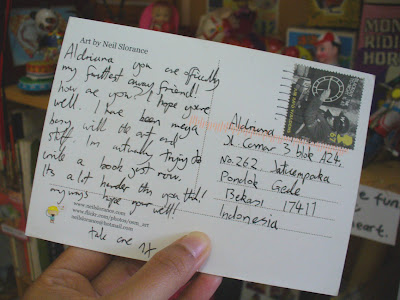 Art by Neil Slorance
Aldriana you are officially
my furthest away friend!
how are you? I hope your
well. I have been mega
busy with the art and
stuff. Im actually trying to
write a book just now.
Its a lot harder than you think!
anyways hope your well!
www.neilslorance.com
www.flickr.com/photos/
neilslorance@hotmail.com
take care
Aldriana
Jl. Cemar 3 blok A24,
No. 262. Jatiwaringin
Pondok Gede
Bekasi 17411
Indonesia
MON
RIDI
HOR
fun
heart.